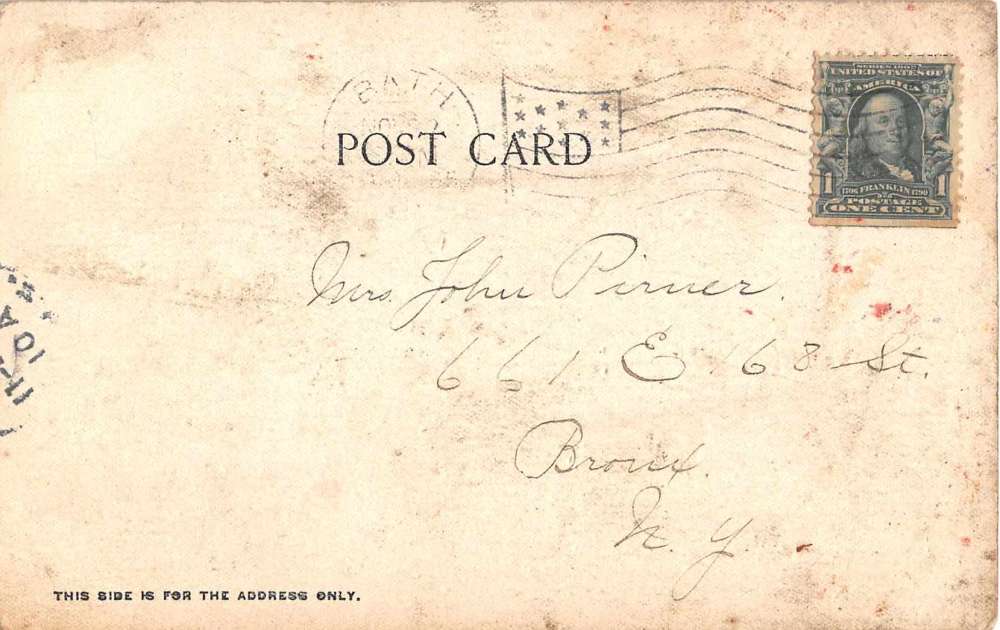 BATH
NOV
POST CARD
SERIES 1902
UNITED STATES OF
AMERICA
1 1706 FRANKLIN 1790 1
POSTAGE
ONE CENT
Mrs. John Pirner.
661 E 168 St.
Bronx.
N. Y.
10 A
11-
THIS SIDE IS FOR THE ADDRESS ONLY.